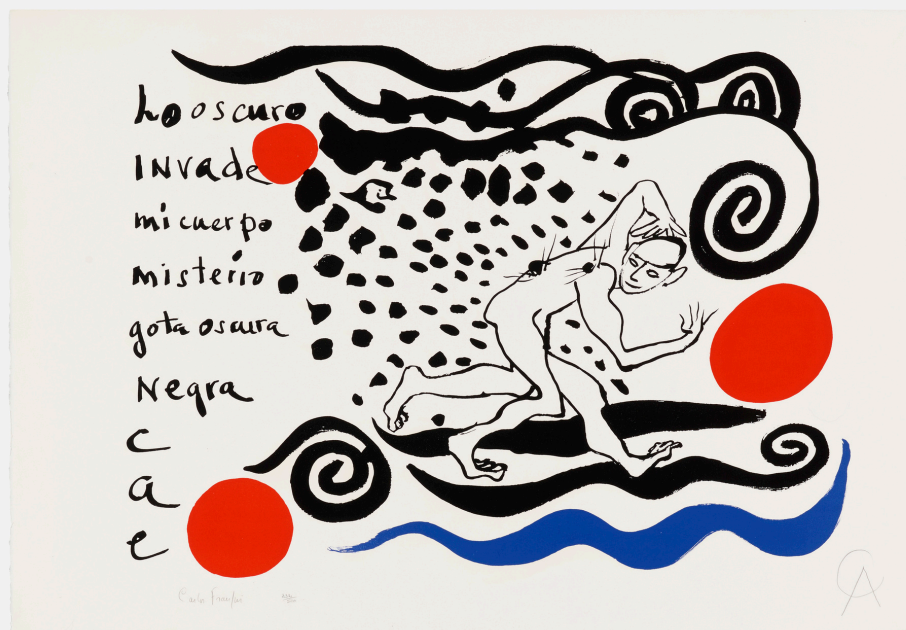 Lo oscuro
INvade
mi cuerpo
misterio
gota oscura
Negra
c
a
e
CA